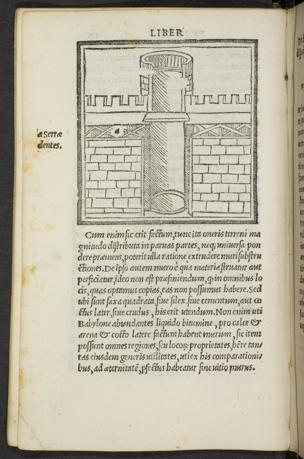 LIBER
a Serræ
dentes.
a
Cum enim sic erit factum, tunc ita oneris terreni ma
gnitudo distributa in paruas partes, neq; uniuersa pon
dere præmens, poterit ulla ratione extrudere muri substru
ctiones. De ipso autem muro è qua materia struatur aut
perficiatur, ideo non est præfiniendum, q in omnibus lo
cis, quas optamus copias, eas non possumus habere. Sed
ubi sunt saxa quadrata, siue silex, siue cementum, aut co
ctus later, siue crudus, his erit utendum. Non enim uti
Babylone abundantes liquido bitumine, pro calce &
arena & cocto latere factum habent murum, sic item
possunt omnes regiones, seu locoq; proprietates, hére tan
tas eiusdem generis utilitates, uti ex his comparationi
bus, ad æternitatē, pfectus habeatur sine uitio murus.